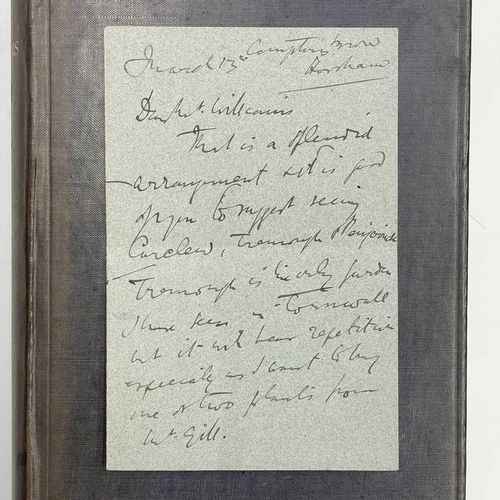 March 13th Comptons Brow
Horsham
Dear Mr. Williams
That is a splendid
arrangement & it is good
of you to suggest seeing
Carclew, Tremough & Penjerrick
Tremough is the only garden
I have seen in Cornwall
but it will bear repetition
especially as I want to buy
one or two plants from
Mr. Gill.